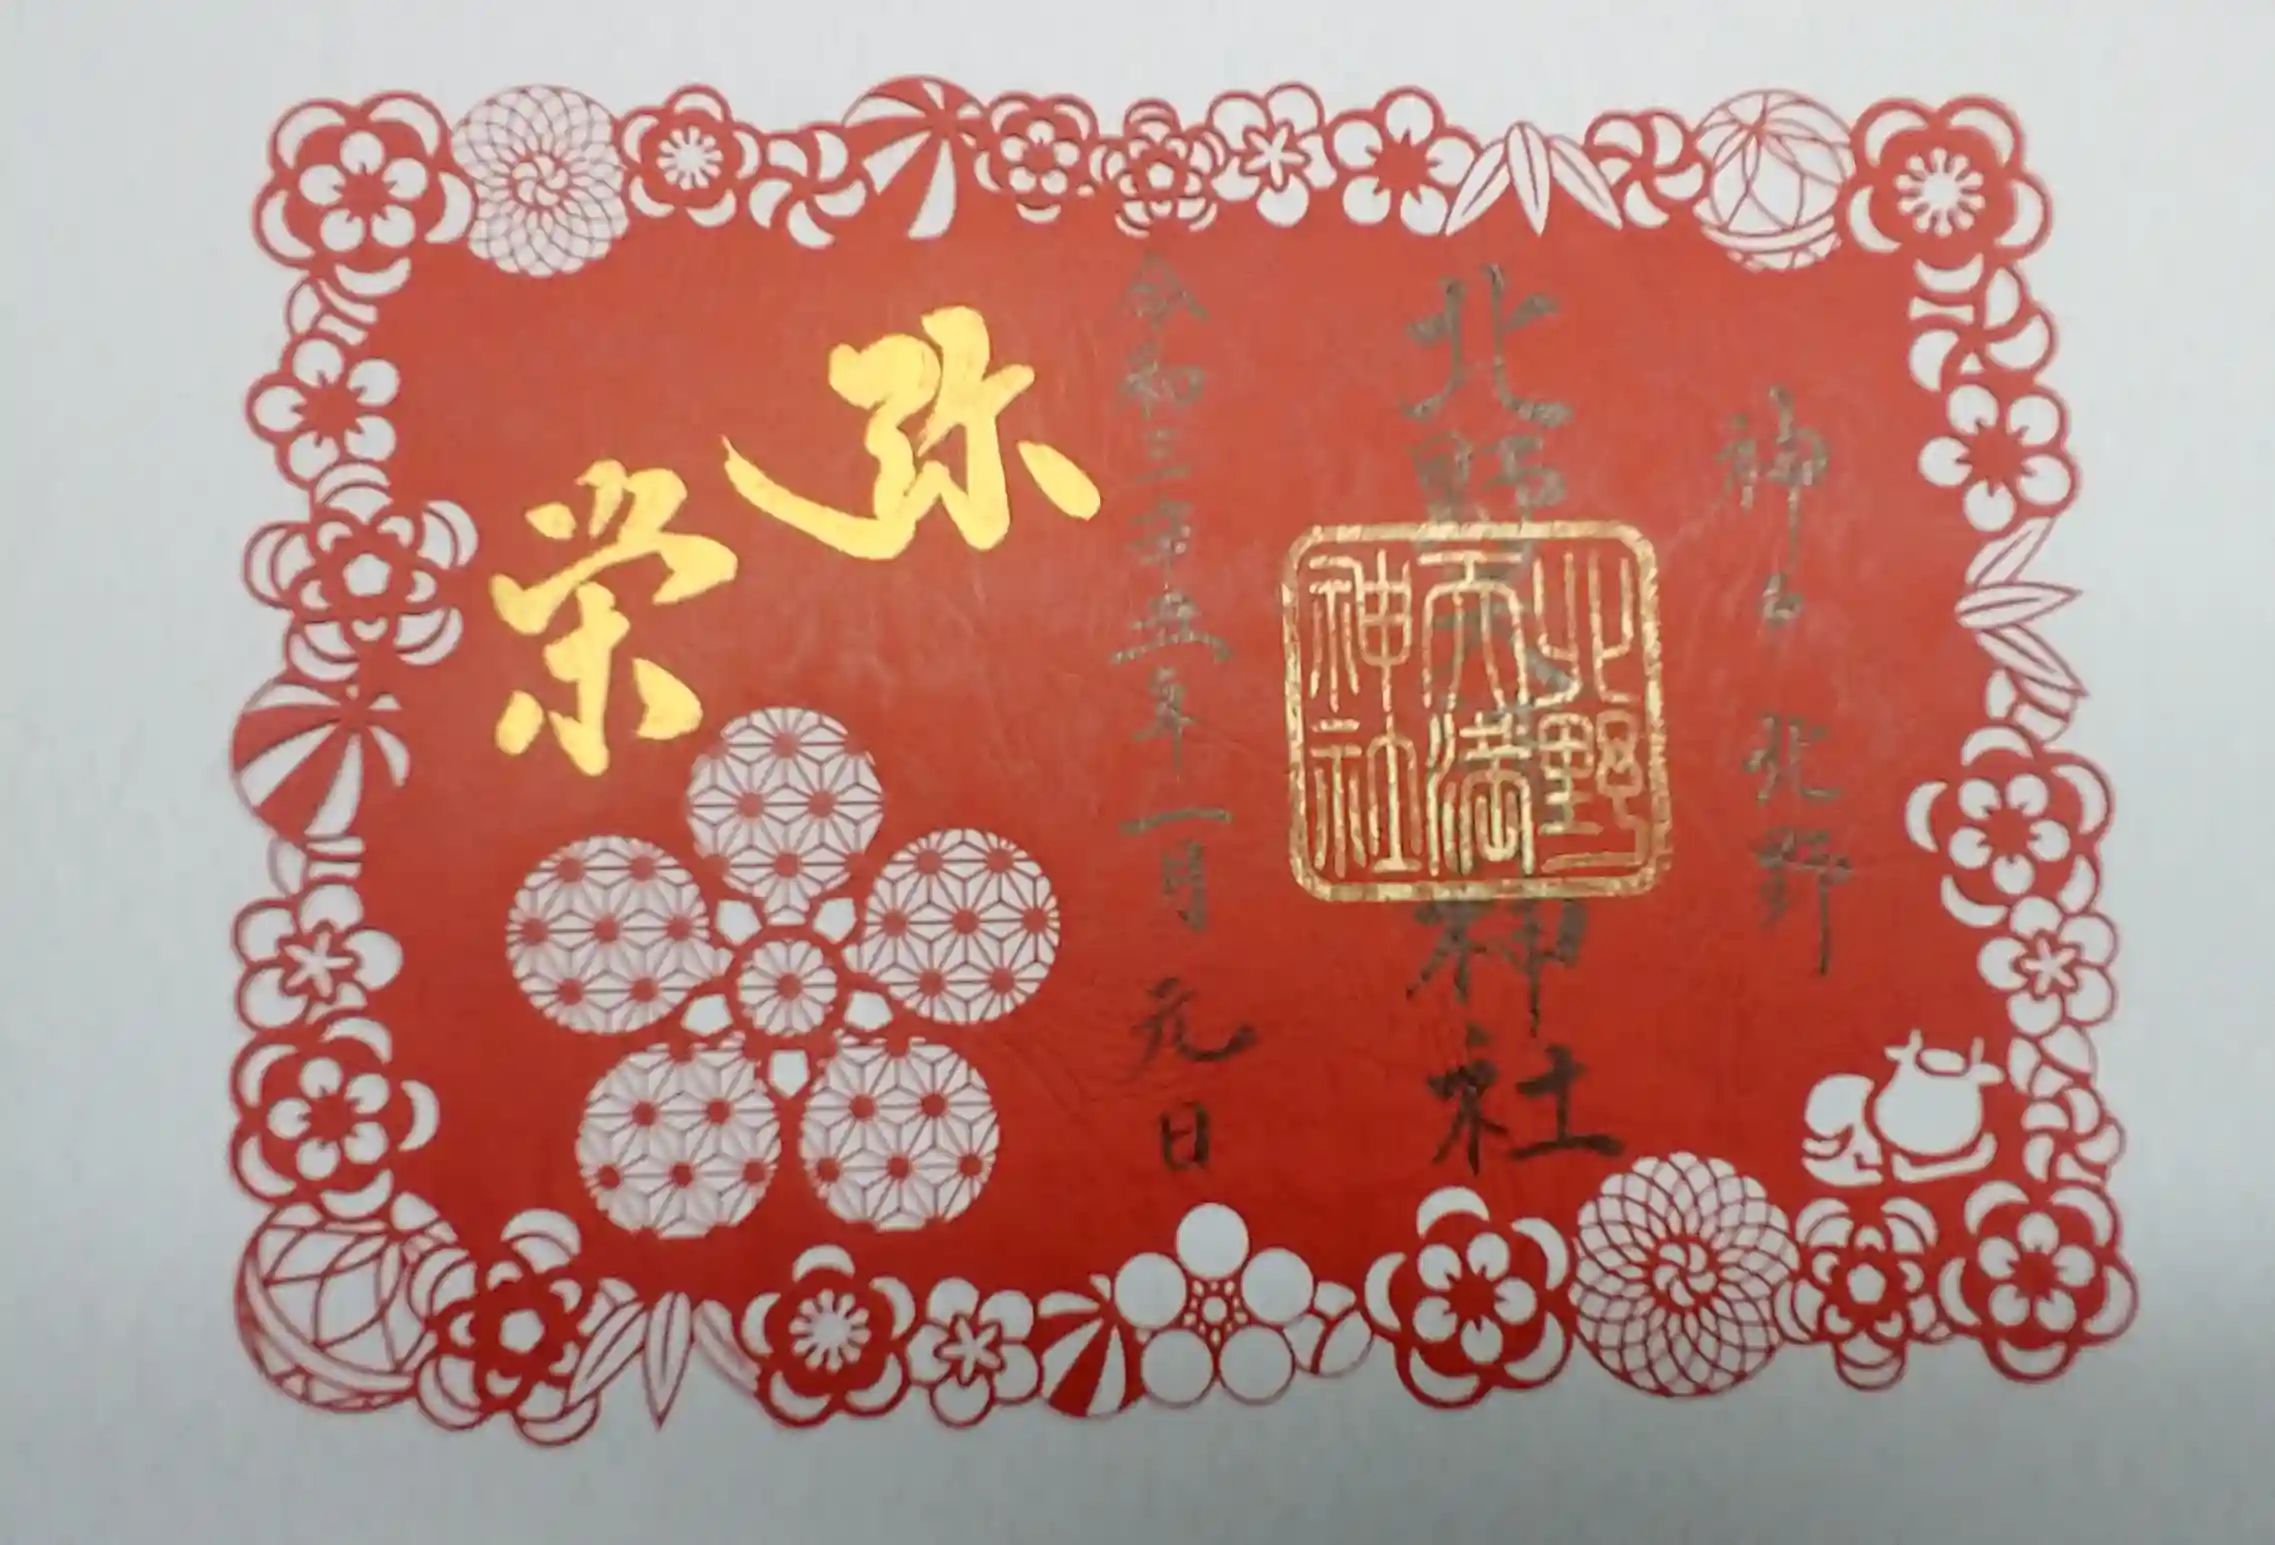 神戸北野
北野天満神社
北野
天満
神社
令和三辛丑年一月元日
弥栄